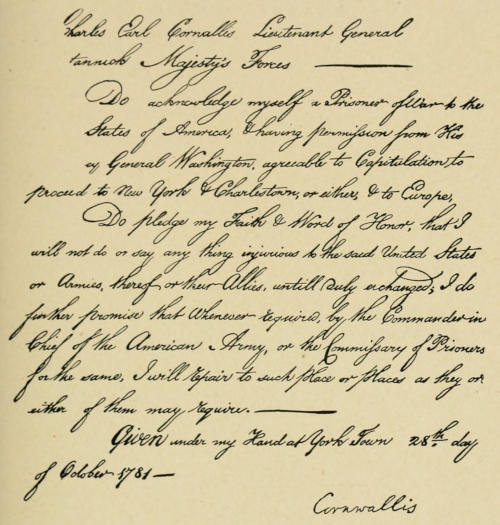 Charles Earl Cornallis Lieutenant General
tannick Majesty's Forces ———
Do acknowledge myself a Prisoner of War to the
States of America, & having permission from His
cy General Washington, agreeable to Capitulation, to
proceed to New York & Charlestown, or either, & to Europe,
Do pledge my Faith & Word of Honor, that I
will not do or say any thing injurious to the said United States
or Armies, thereof or their Allies, untill duly exchanged; I do
further promise that Whenever required, by the Commander in
Chief of the American Army, or the Commissary of Prisoners
for the same, I will repair to such place or places as they or
either of them may require. ———
Given under my Hand at York Town 28th. day
of October 1781 —
Cornwallis